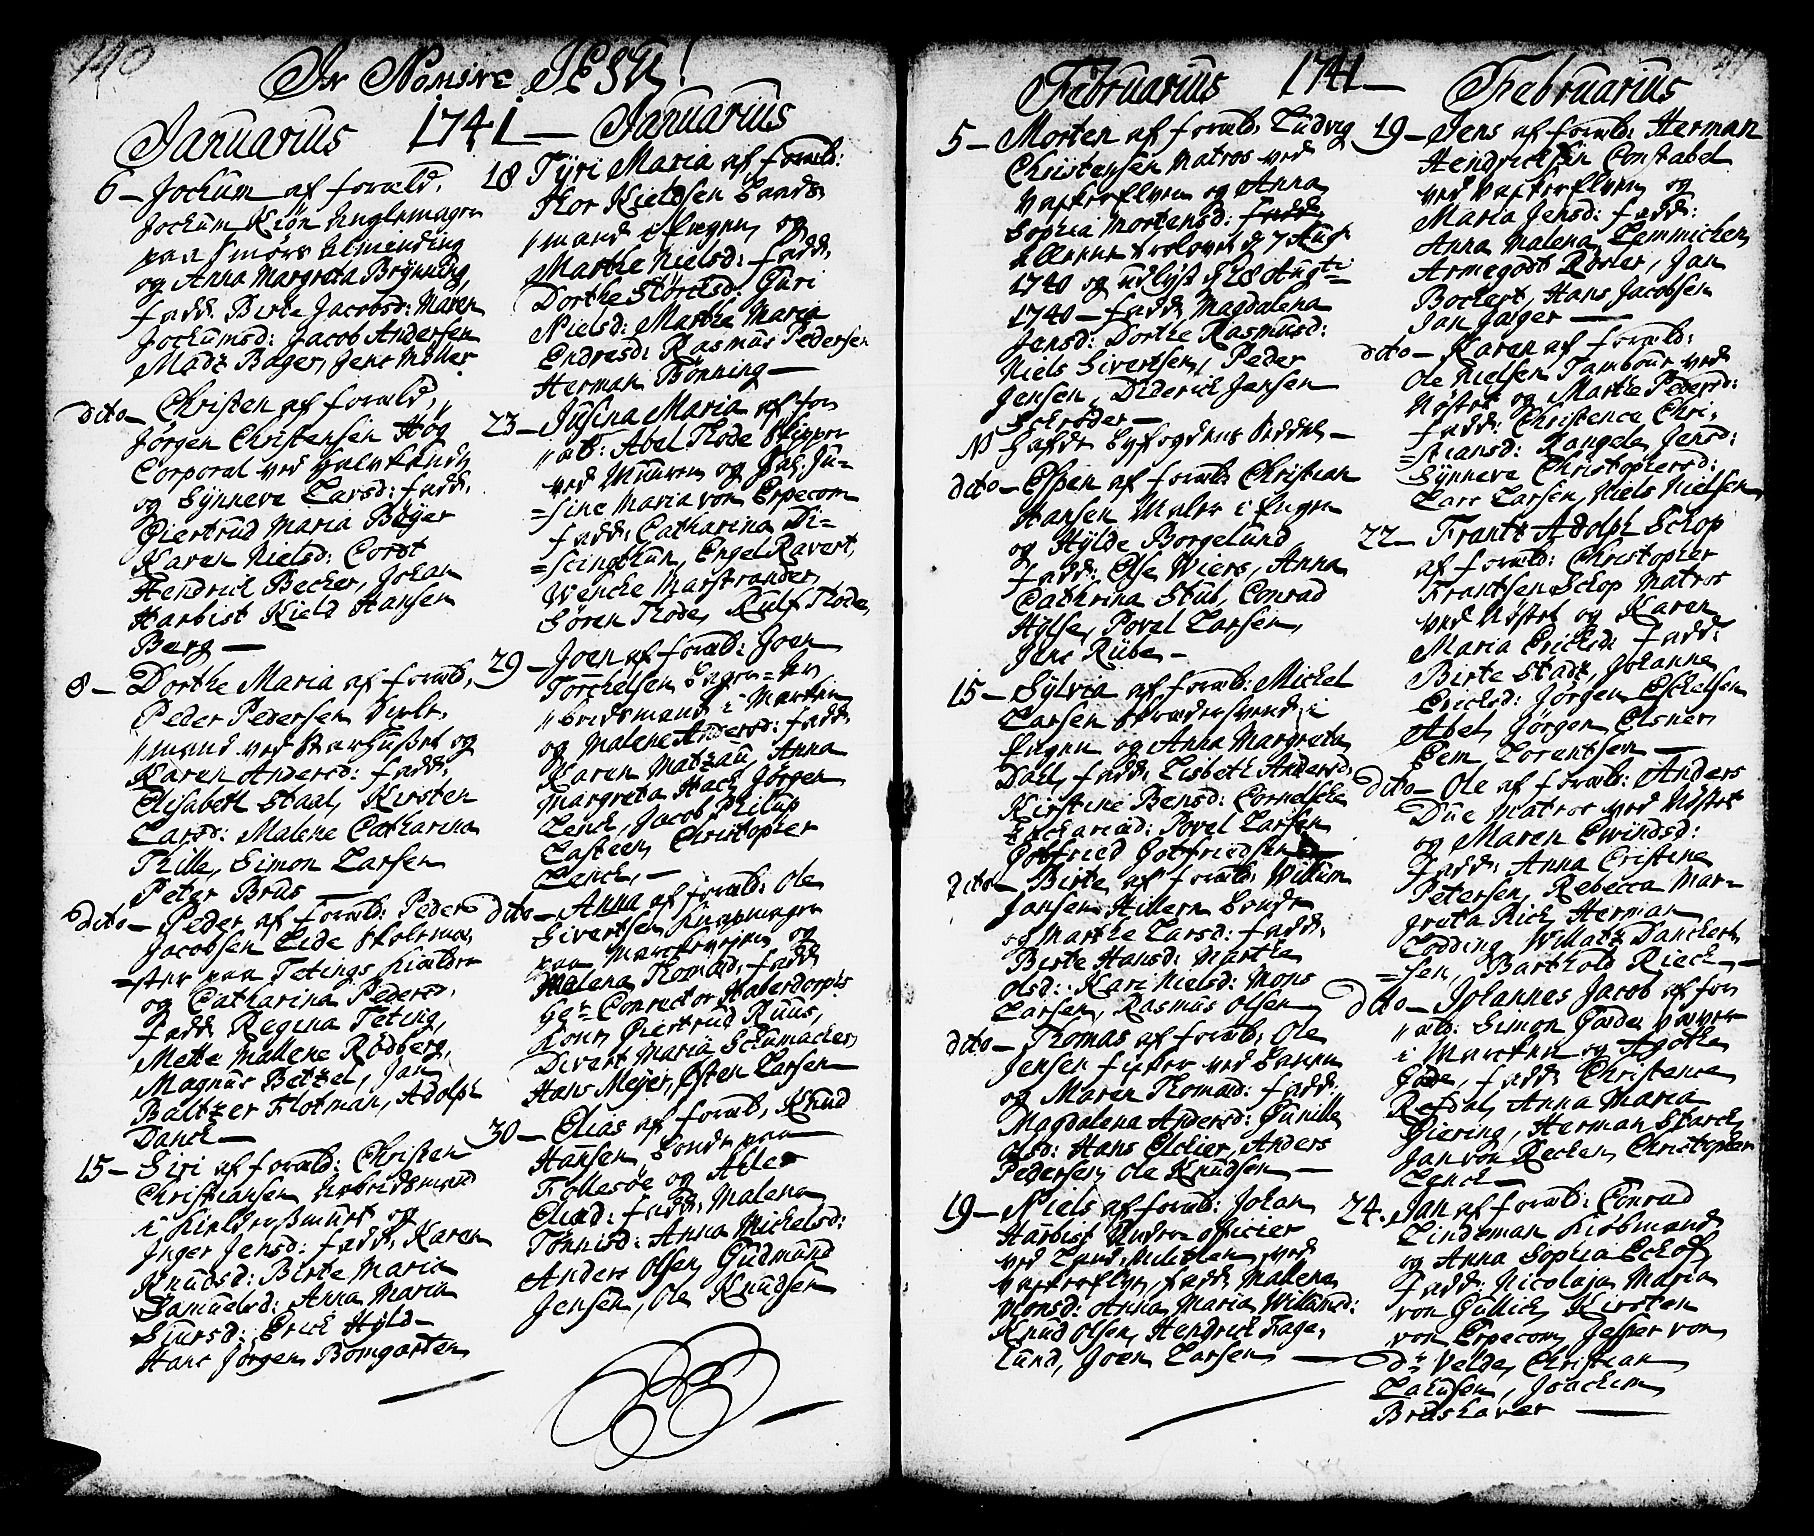 140
In Nomine JESU!
Januarius 1741 — Januarius
6 — Jochum af foræld.
Jochum Kiön Uglemager
paa Smørs Almending
og Anna Margreta Brÿnning,
fadd. Birte Jacobsd: Maren
Jochumsd: Jacob Andersen
Madz Bager, Jens Möller
dito — Christen af foræld.
Jörgen Christensen Høg
Corporal ved
og Synneve Larsd: fadd.
Giertrud Maria Böÿer
Karen Nielsd: Cordt
Hendrich Becker, Johan
Harbist Kield Hansen
Berg —
8 — Dorthe Maria af foræld.
Peder Pedersen
mand ved og
Karen Andersd: fadd.
Elisabeth Staal, Kirsten
Larsd: Malene Catharina
Thille, Simon Larsen
Peter Brüs —
dito — Peder af foræld: Peder
Jacobsen Lide Skolema,
=ster paa Tetings
og Catharina Pedersd.
fadd. Regina Teting,
Mette Mallene Rodberg,
Magnus Betzel, Jan
Baltzer Flotman, Adolph
Danck —
15 — Siri af foræld: Christen
Christiansen Arbeidsmand
i og
Inger Jensd: fadd. Karen
Knudsd: Birte Maria
Samuelsd: Anna Maria
Siursd: Erich Hÿld —
Hans Jörgen Bomgarten
18 Tÿri Maria af foræld:
Thor Kieldsen
mand og
Marthe Nielsd: fadd.
Dorthe Störchsd: Guri
Nielsd: Marthe Maria
Endresd: Rasmus Pedersen
Herman Bönning —
23 — Jusina Maria af for
æld: Abel Thode Skipper
ved Muuren og Sal: Ju=
=sine Maria von Erpecom
fadd. Catharina Di=
=scingthun, Engel Ravert,
Wencke Marstrander
Søren Thode, Rulf Thode,
29 — Joen af foræld: Joen
Torchelsen
=beidsmand i Marken
og Malene Andersd: fadd.
Karen Matzau, Anna
Margreta Hach, Jörgen
Lenck, Jacob Philup
Lasteen, Christopher
Lenck, —
dito — Anna af foræld: Ole
Sivertsen Knapmager
paa og
Malena Thomæd: fadd.
Hr Conrector Haberdorphs
Kone, Giertrud Ruus,
Divert Maria Schumacher,
Hans Meÿer, Østen Larsen
30 — Elias af foræld. Knud
Hansen Bonde paa
Follesøe og Alle
Eliæd: fadd. Malena
Tönnisd: Anna Michelsd:
Anders Olsen, Gudmund
Jensen, Ole Knudsen
Februarius 1741 — Februarius
5 — Morten af foræld. Ludvig
Christensen Matros ved
og Anna
Sophia Mortensd: fadd.
trolovet d. 7 Aug:
1740 og udlyst d. 28 Augti
1740 — fadd. Magdalena
Jensd: Dorthe Rasmusd:
Niels Sivertsen, Peder
Jensen, Diderich Jansen
Schröder —
N Byfogdens Seddel —
dito — Espen af foræld. Christian
Hansen Maler i Engen
og Hÿlde Borgelund
fadd. Else Wiers, Anna
Cathrina Stub, Conrad
Hylse, Povel Larsen,
Jens Rübe. —
15 — Sÿlvia af foræld: Michel
Larsen Skredersvend i
Engen og Anna Margreta
Dahl, fadd. Lisbeth Andersd.
Kirstine Bensd: Cornelsche
Zachariæd: Povel Larsen
Gotfried Gotfriedsen
dito — Birte af foræld: Willum
Jansen Hillern Bonde
og Marthe Larsd: fadd.
Birte Hansd: Marthe
Olsd: Kari Nielsd: Mons
Larsen, Rasmus Olsen
dito — Thomas af foræld, Ole
Jensen fisker ved
og Maren Thomæd: fadd:
Magdalena Andersd: Gunille
Olsd: Hans Elchier, Anders
Pedersen, Ole Knudsen —
19 — Niels af foræld: Johan
Harbist Under officier
ved Land: Militien ved
fadd. Malene
Monsd: Anna Maria Willumd:
Knud Olsen, Hendrich Fage,
lund, Joen Larsen —
19 — Jens af foræld: Herman
Heindrichsen Constabel
ved og
Maria Jensd: fadd:
Anna Malena Lemmichen,
Armegodt Roser, Jan
Bockert, Hans Jacobsen
Jan Jæger —
dito — Karen af foræld:
Ole Nielsen Tambour ved
Nøstet og Marthe Pedersd:
fadd: Christence Chri,
=stiansd: Rangela Jensd:
Synneve Christophersd:
Lars Larsen, Niels Nielsen
22 — Frantz Adolph Schop
af foræld: Christopher
Frantsen Schop Matros
ved Nøstet og Karen
Maria Ericksd: fadd:
Birte Stadz, Johanne
Ericksd: Jörgen Eschelsen
Abel, Jörgen Elsner,
Eem Lorentsen —
dito — Ole af foræld: Anders
Due Matros ved Nøstet
og Maren Ewindsd:
fadd: Anna Cristine
Petersen, Rebecca Mar=
greta Rich, Herman
Lodding, Willatz Danckert
=sen, Barthold Rieck —
dito — Johannes Jacob af for
æld: Simon Garde Væver
i Marcken og Agothe
Gade, fadd: Christence
Refdal, Anna Maria
Giering, Herman Starck
Jan von Recken, Christopher
Lenck —
24. Jan af foræld: Conrad
Lindeman Kiøbmand
og Anna Sophia Eckhof,
fadd: Nicolaja Maria
von Gullich, Kirsten
von Erpecom, Jesper von
dr Velde, Christian
Lahusen, Joachim
Brushaver —